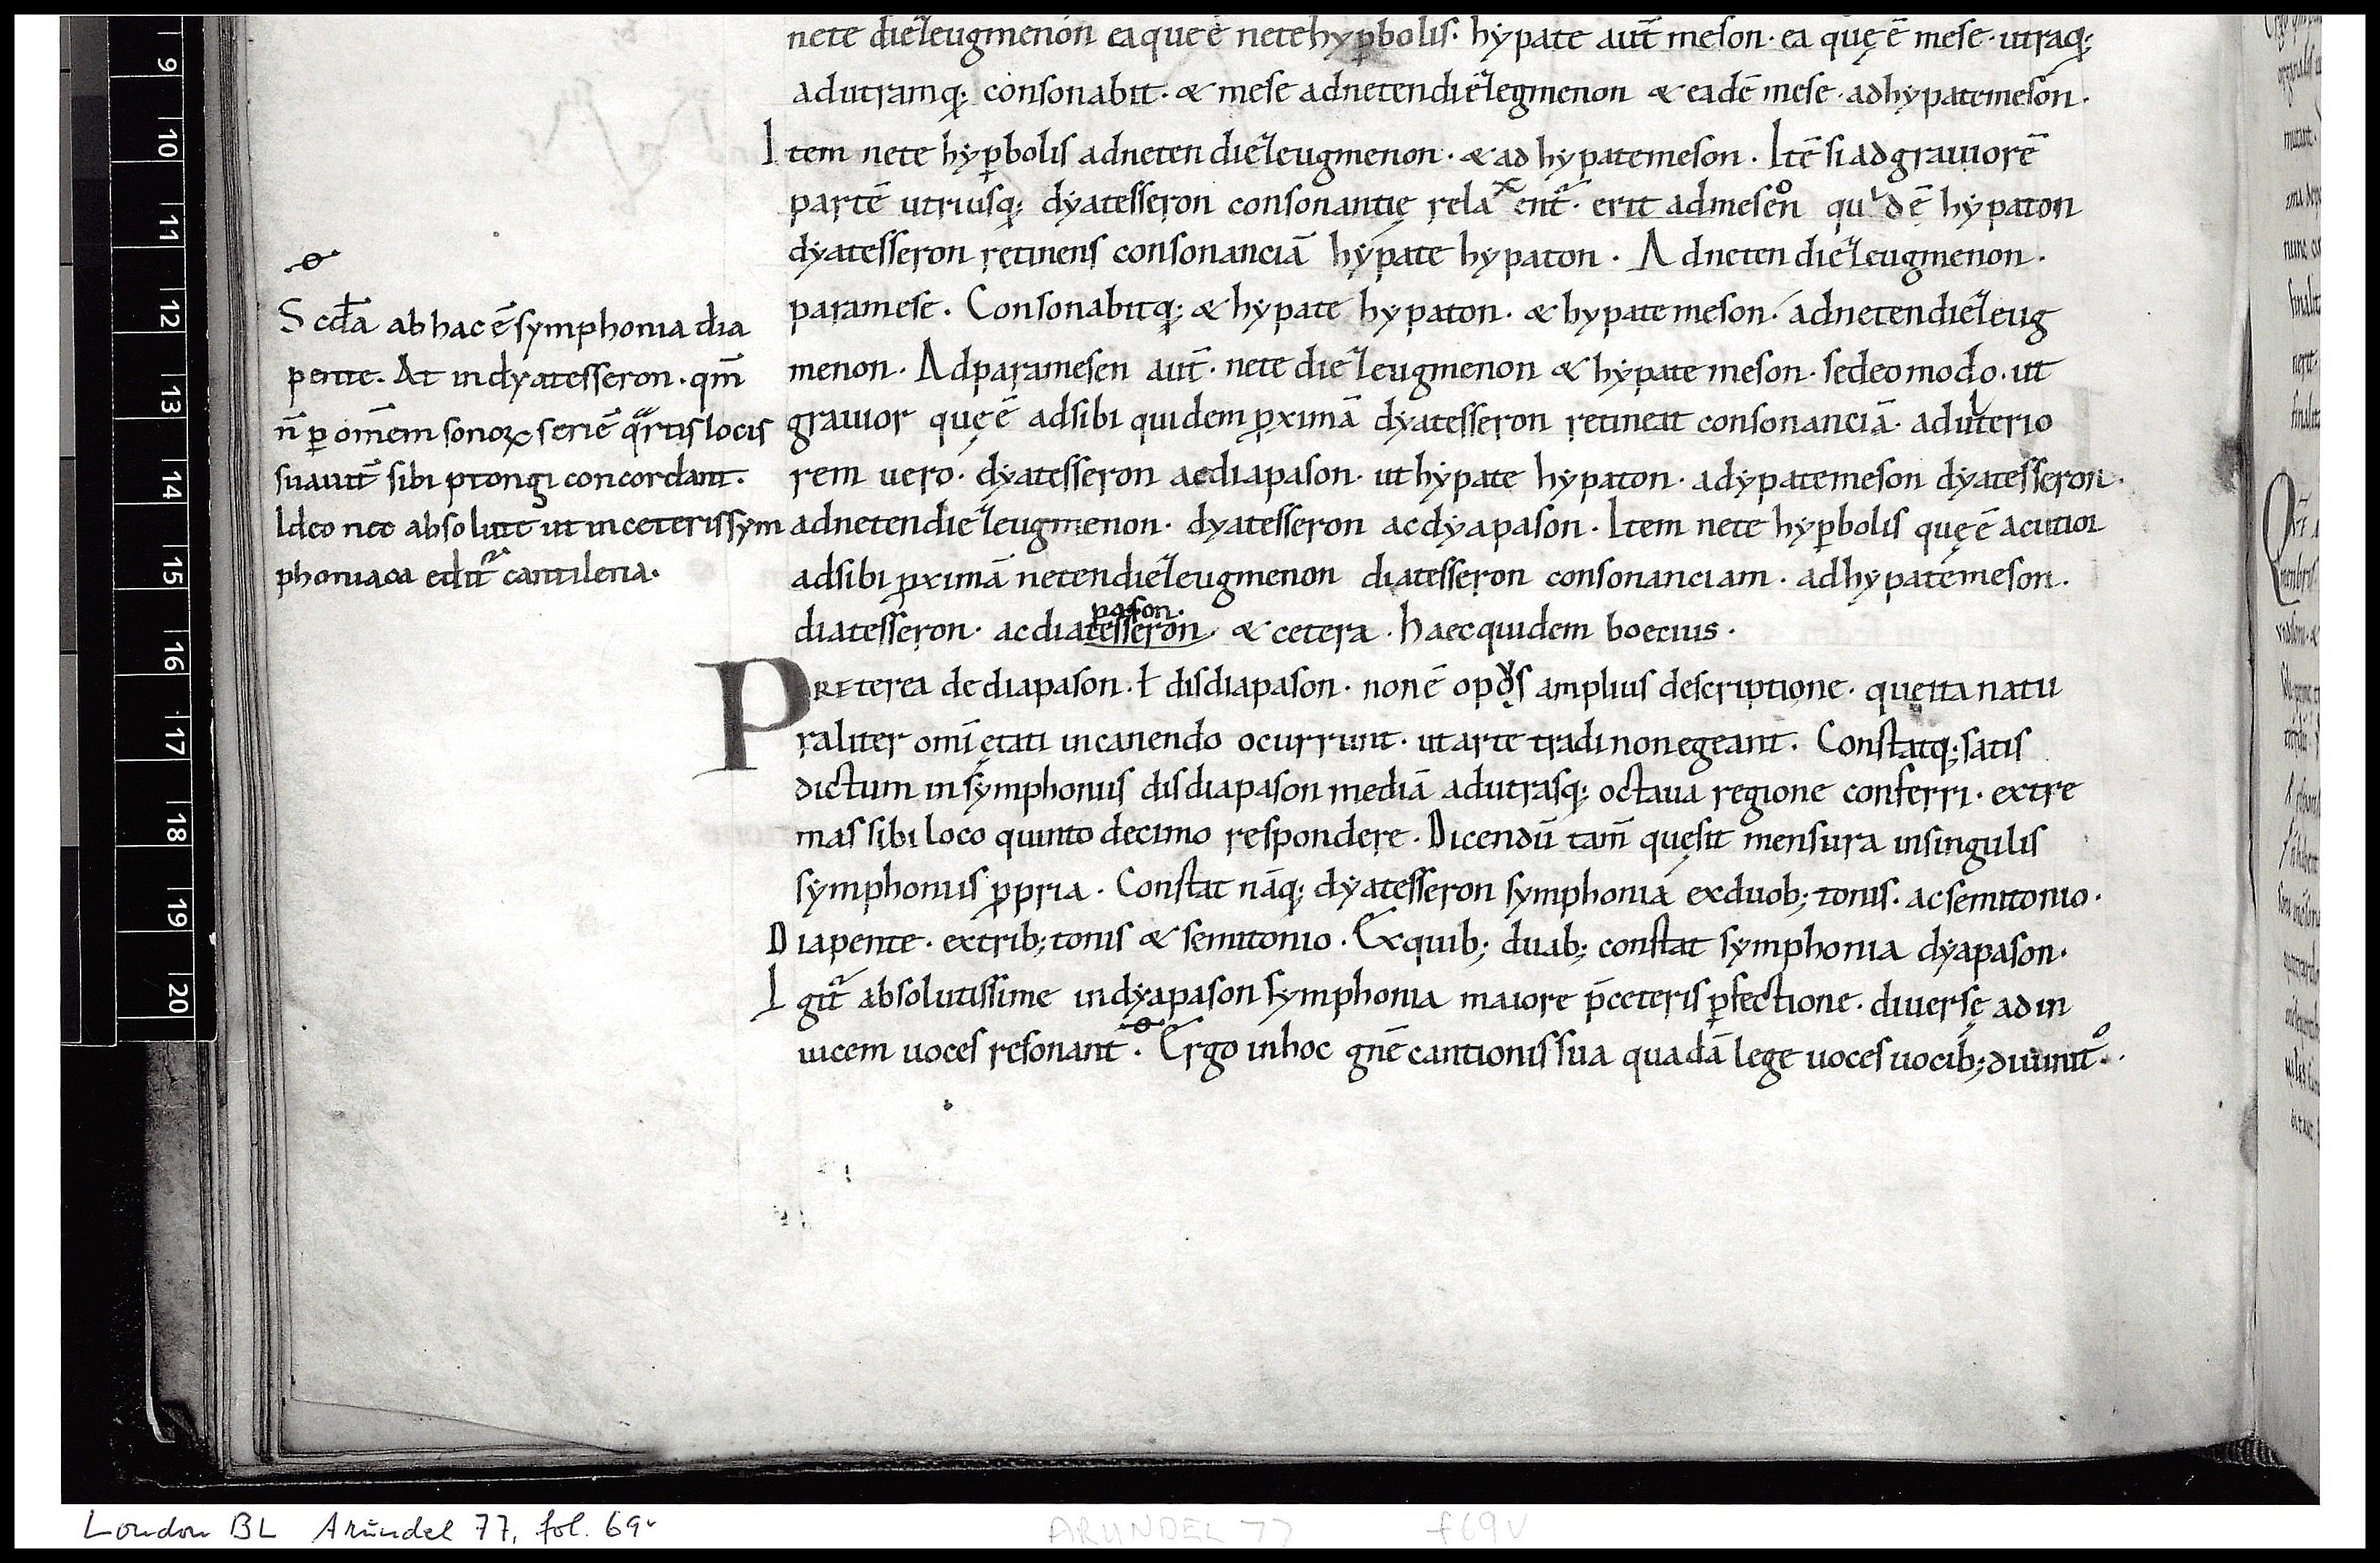 nete dieꝫeugmenon ea que ē nete hyꝑbolis · hypate aut̄ meson · ea quę ē mese · utraq;
ad utramq; consonabit · & mese ad neten dieꝫegmenon & eadē mese · ad hypate meson ·
Item nete hyꝑbolis ad neten dieꝫeugmenon · & ad hypate meson · Itē si ad grauiorē
partē utriusq; dyatesseron consonantię relaxent᷑ · erit ad mesen qͥdē hypaton
dyatesseron retinens consonanciā hypate hypaton · Ad neten dieꝫeugmenon ·
paramese · Consonabitq; & hypate hypaton · & hypate meson · ad neten dieꝫeug
menon · Ad paramesen aut̄ · nete dieꝫeugmenon & hypate meson · sed eo modo · ut
grauior quę ē ad sibi quidem ꝓximā dyatesseron retineat consonanciā · ad ulterio
rem uero · dyatesseron ac diapason · ut hypate hypaton · ad ypate meson dyatesseron ·
ad neten dieꝫeugmenon · dyatesseron ac dyapason · Item nete hyꝑbolis quę ē acutior
ad sibi ꝓximā neten dieꝫeugmenon diatesseron consonanciam · ad hypate meson ·
pason ·
diatesseron · ac diatesseron · & cetera · haec quidem boecius ·
PREterea de diapason · ł disdiapason · non ē opus amplius descriptione · que ita natu
raliter omī ętati in canendo ocurrunt · ut arte tradi non egeant · Constatq; satis
dictum in symphoniis disdiapason mediā ad utrasq; octaua regione conferri · extre
mas sibi loco quinto decimo respondere · Dicendū tam̄ quę sit mensura in singulis
symphoniis ꝓpria · Constat nāq; dyatesseron symphonia ex duob; tonis · ac semitonio ·
Diapente · ex trib; tonis & semitonio · Ex quib; duab; constat symphonia dyapason ·
Igit᷑ absolutissime in dyapason symphonia maiore p̄ ceteris ꝑfectione · diuersę ad in
uicem uoces resonant · Ergo in hoc gn̄e cantionis sua quadā lege uoces uocib;
Scd̄a ab hac ē symphonia dia
pente · At in dyatesseron · qm̄
n̄ ꝑ om̄em sonoꝝ seriē qͣrtis locis
suauit̄ sibi ptongi concordant ·
Ideo nec absolute ut in ceteris sym
phoniaca edit᷑ cantilena ·
9
10
11
12
13
14
15
16
17
18
19
20
London BL Arundel 77, fol. 69v
ARUNDEL 77 f69V